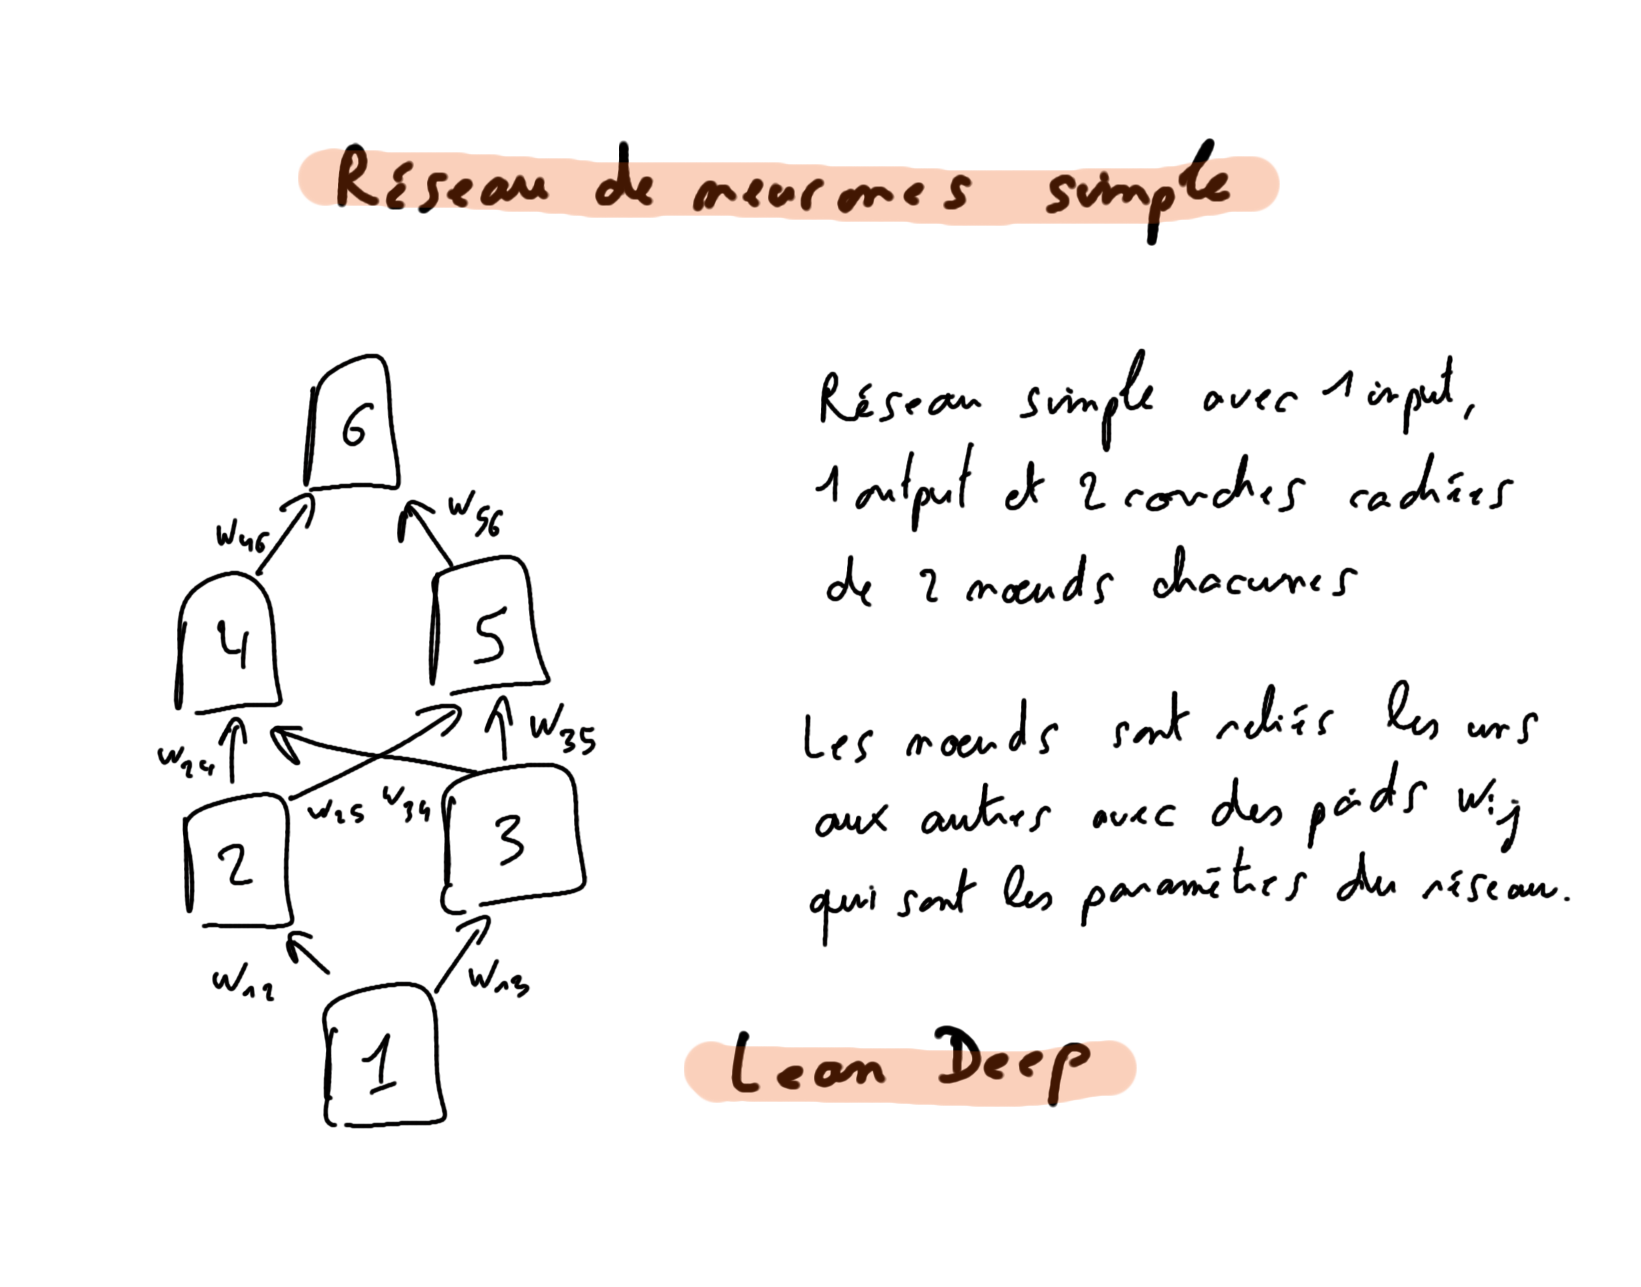 Réseau de neurones simple
6
w46 w56
4 5
w24 w25 w34 w35
2 3
w12 w13
1
Réseau simple avec 1 input,
1 output et 2 couches cachées
de 2 nœuds chacunes
Les nœuds sont reliés les uns
aux autres avec des poids wij
qui sont les paramètres du réseau.
Lean Deep